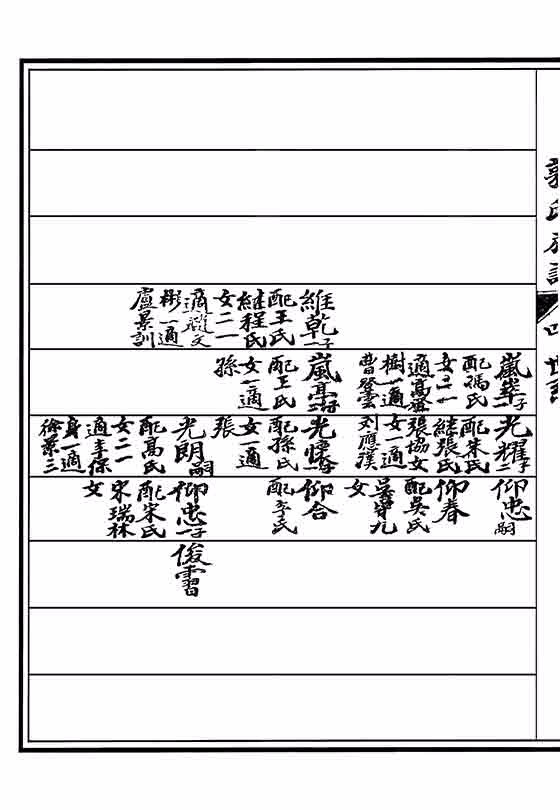 維乾一子
配王氏
継程氏
女二一
適文
彬一適
盧景訓
嵐峯子
配馮氏
女二一
適高
樹一適
曹登雲
嵐亭子
配王氏
女一適
孫
光耀二子
配朱氏
継張氏
張協女
女一適
刘應漢
光懷
配孫氏
女一適
張
光朗嗣
配高氏
女二一
適李保
身一適
徐景三
仰忠嗣
仰春
配吳氏
吳守九
女
仰合
配李氏
仰忠一子
配宋氏
宋瑞林
女
俊